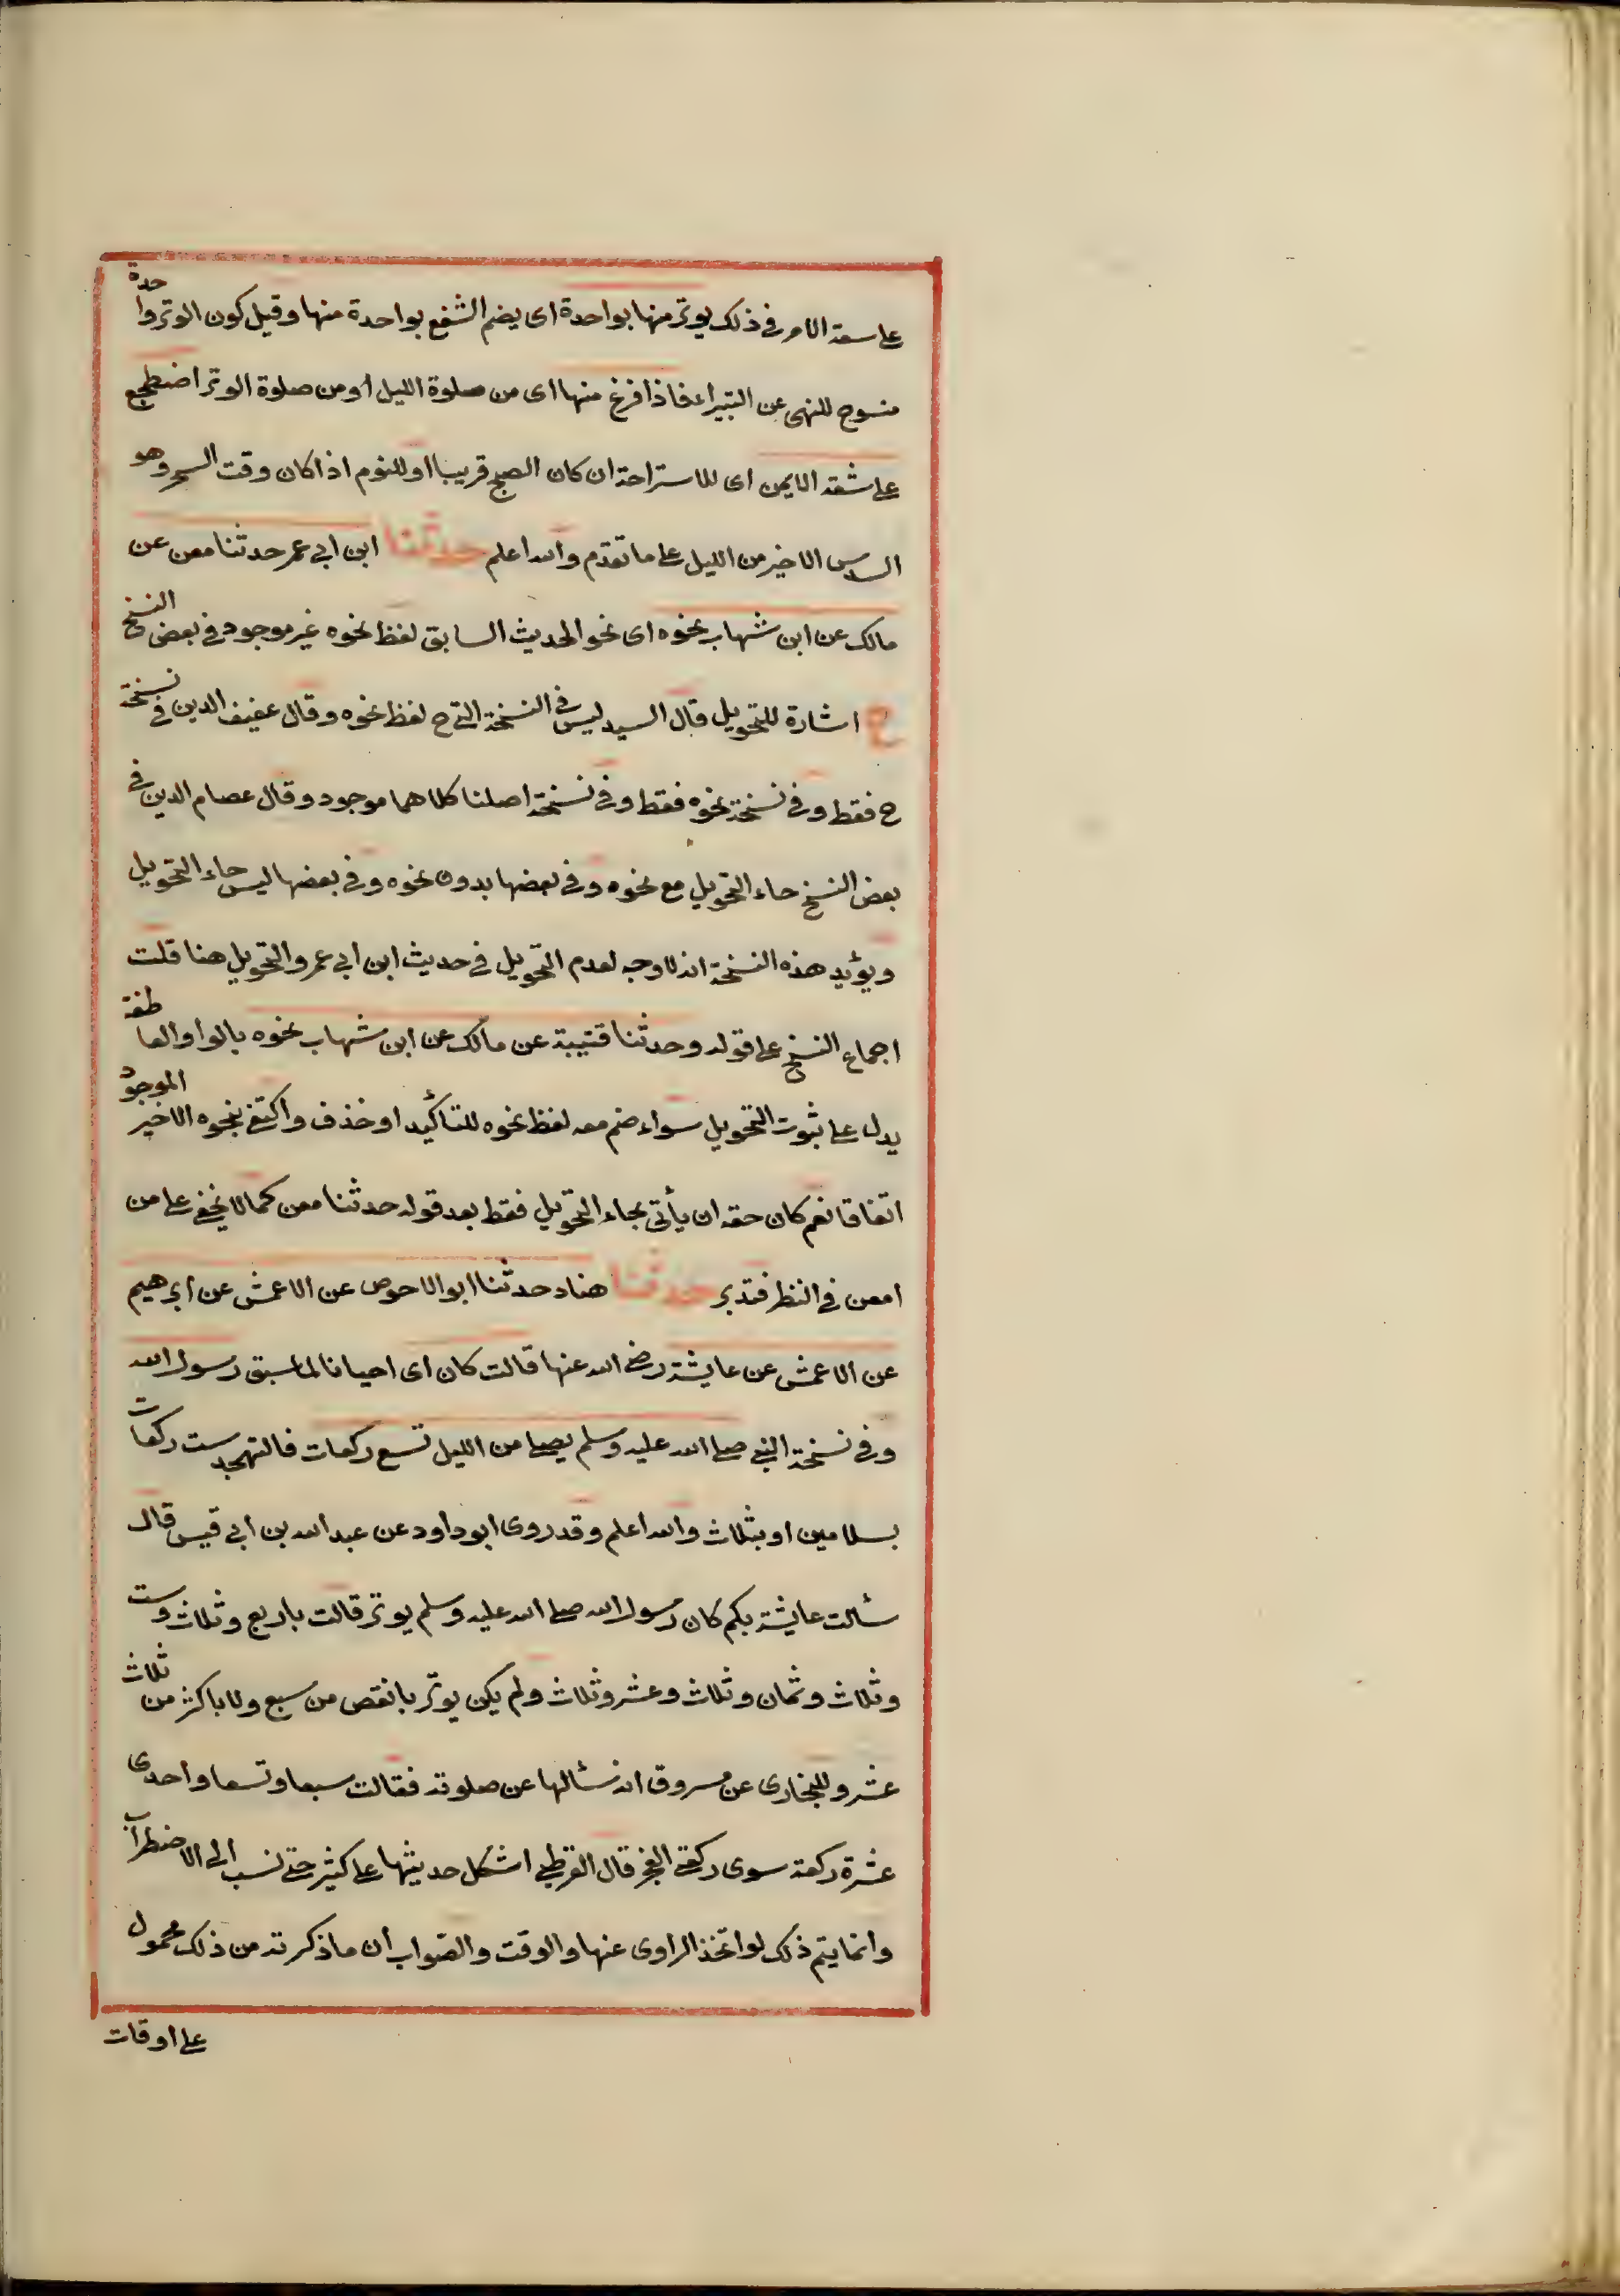 على سعة الامر في ذلك يوتر منها بواحدة اى يضم الشفع بواحدة منها وقيل كون الوتر واحدة
منسوخ للنهى عن البتيراء فاذا فرغ منها اى من صلوة الليل او من صلوة الوتر اضطجع
على شقه الايمن اى للاستراحة ان كان الصبح قريبا او للنوم اذا كان وقت السحر وهو
السدس الاخير من الليل على ما تقدم والله اعلم حدثنا ابن ابى عمر حدثنا معن عن
مالك عن ابن شهاب نحوه اى نحو الحديث السابق لفظ نحوه غير موجود فى بعض النسخ
ح اشارة للتحويل قال السيد ليس فى النسخة التى ح لفظ نحوه وقال عفيف الدين فى نسخة
ح فقط وفى نسخة نحوه فقط وفى نسخة اصلنا كلاهما موجود وقال عصام الدين فى
بعض النسخ حاء التحويل مع نحوه وفى بعضها بدون نحوه وفى بعضها ليس حاء التحويل
ويؤيد هذه النسخة انه لا وجه لعدم التحويل فى حديث ابن ابى عمر والتحويل هنا قلت
اجماع النسخ على قوله وحدثنا قتيبة عن مالك عن ابن شهاب نحوه بالواو العاطفة
يدل على ثبوت التحويل سواء ضم معه لفظ نحوه للتأكيد او حذف واكتفى بنحوه الاخير الموجود
اتفاقا نعم كان حقه ان يأتى بحاء التحويل فقط بعد قوله حدثنا معن كما لا يخفى على من
امعن فى النظر فتدبر حدثنا هناد حدثنا ابو الاحوص عن الاعمش عن ابرهيم
عن الاعمش عن عايشة رضى الله عنها قالت كان اى احيانا لما سبق رسول الله
وفى نسخة النبى صلى الله عليه وسلم يصلى من الليل تسع ركعات فالتهجد ست ركعات
بسلامين او بثلاث والله اعلم وقد روى ابو داود عن عبد الله بن ابى قيس قال
سئالت عايشة بكم كان رسول الله صلى الله عليه وسلم يوتر قالت باربع وثلاث وست
وثلاث وثمان وثلاث وعشر وثلاث ولم يكن يوتر بانقص من سبع ولا باكثر من ثلاث
عشر وللبخارى عن مسروق انه سئالها عن صلوته فقالت سبعا وتسعا واحدى
عشرة ركعة سوى ركعتى الفجر قال القرطبى اشكل حديثها على كثير حتى نسب الى الاضطراب
وانما يتم ذلك لو اتخذ الراوى عنها والوقت والصواب ان ما ذكرته من ذلك محمول
على اوقات